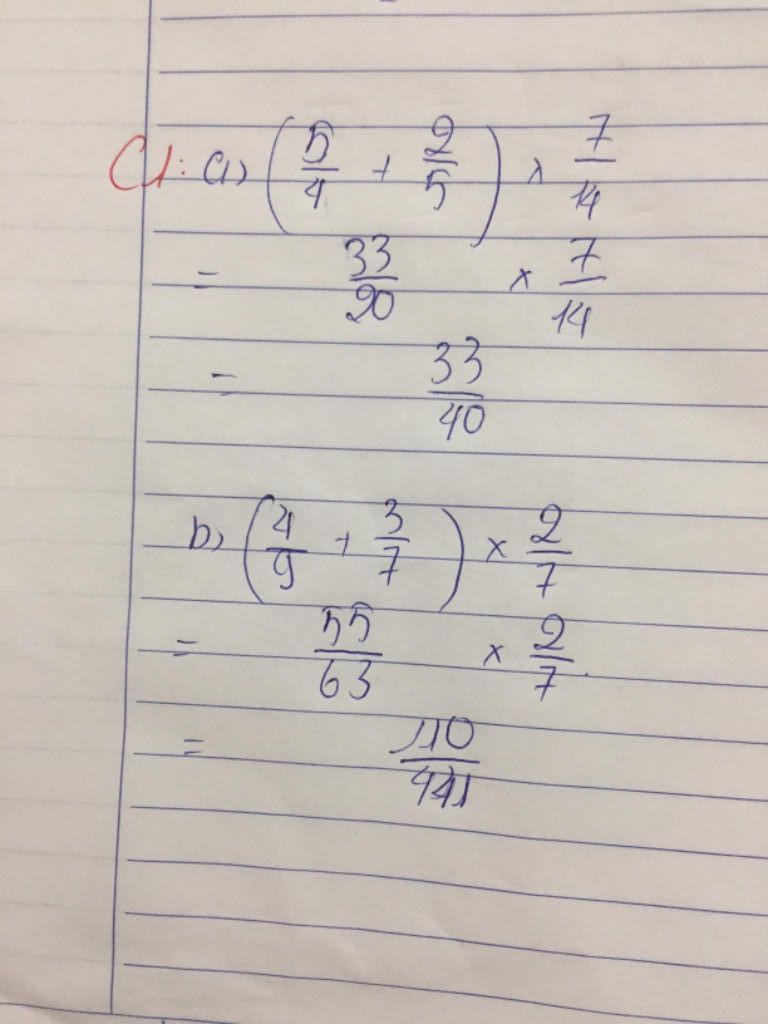 C1: a) (5/4 + 2/5) × 7/14
= 33/20 × 7/14
= 33/40
b) (4/9 + 3/7) × 2/7
= 55/63 × 2/7
= 110/441